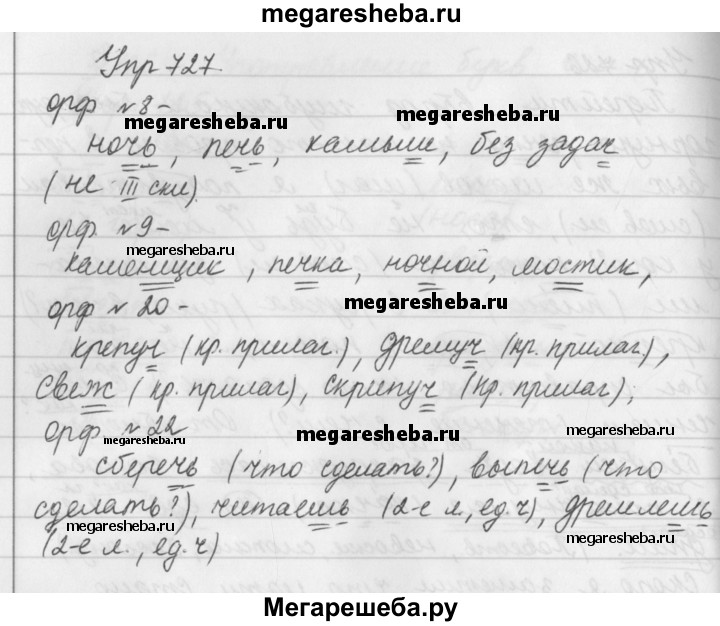 megaresheba.ru
Упр 727.
орф №8 –
megaresheba.ru megaresheba.ru
ночь, печь, камыш, без задач
(не III скл).
орф. №9 –
megaresheba.ru
каменщик, печка, ночной, мостик,
орф №20 –
megaresheba.ru
крепуч (кр. прилаг.), дремуч (кр. прилаг.),
свеж (кр. прилаг), скрипуч (кр. прилаг);
орф №22
megaresheba.ru megaresheba.ru megaresheba.ru
сберечь (что сделать?), выпечь (что
сделать?), читаешь (2-е л, ед. ч), дремлешь
megaresheba.ru megaresheba.ru
(2-е л., ед. ч)
Мегарешеба.ру